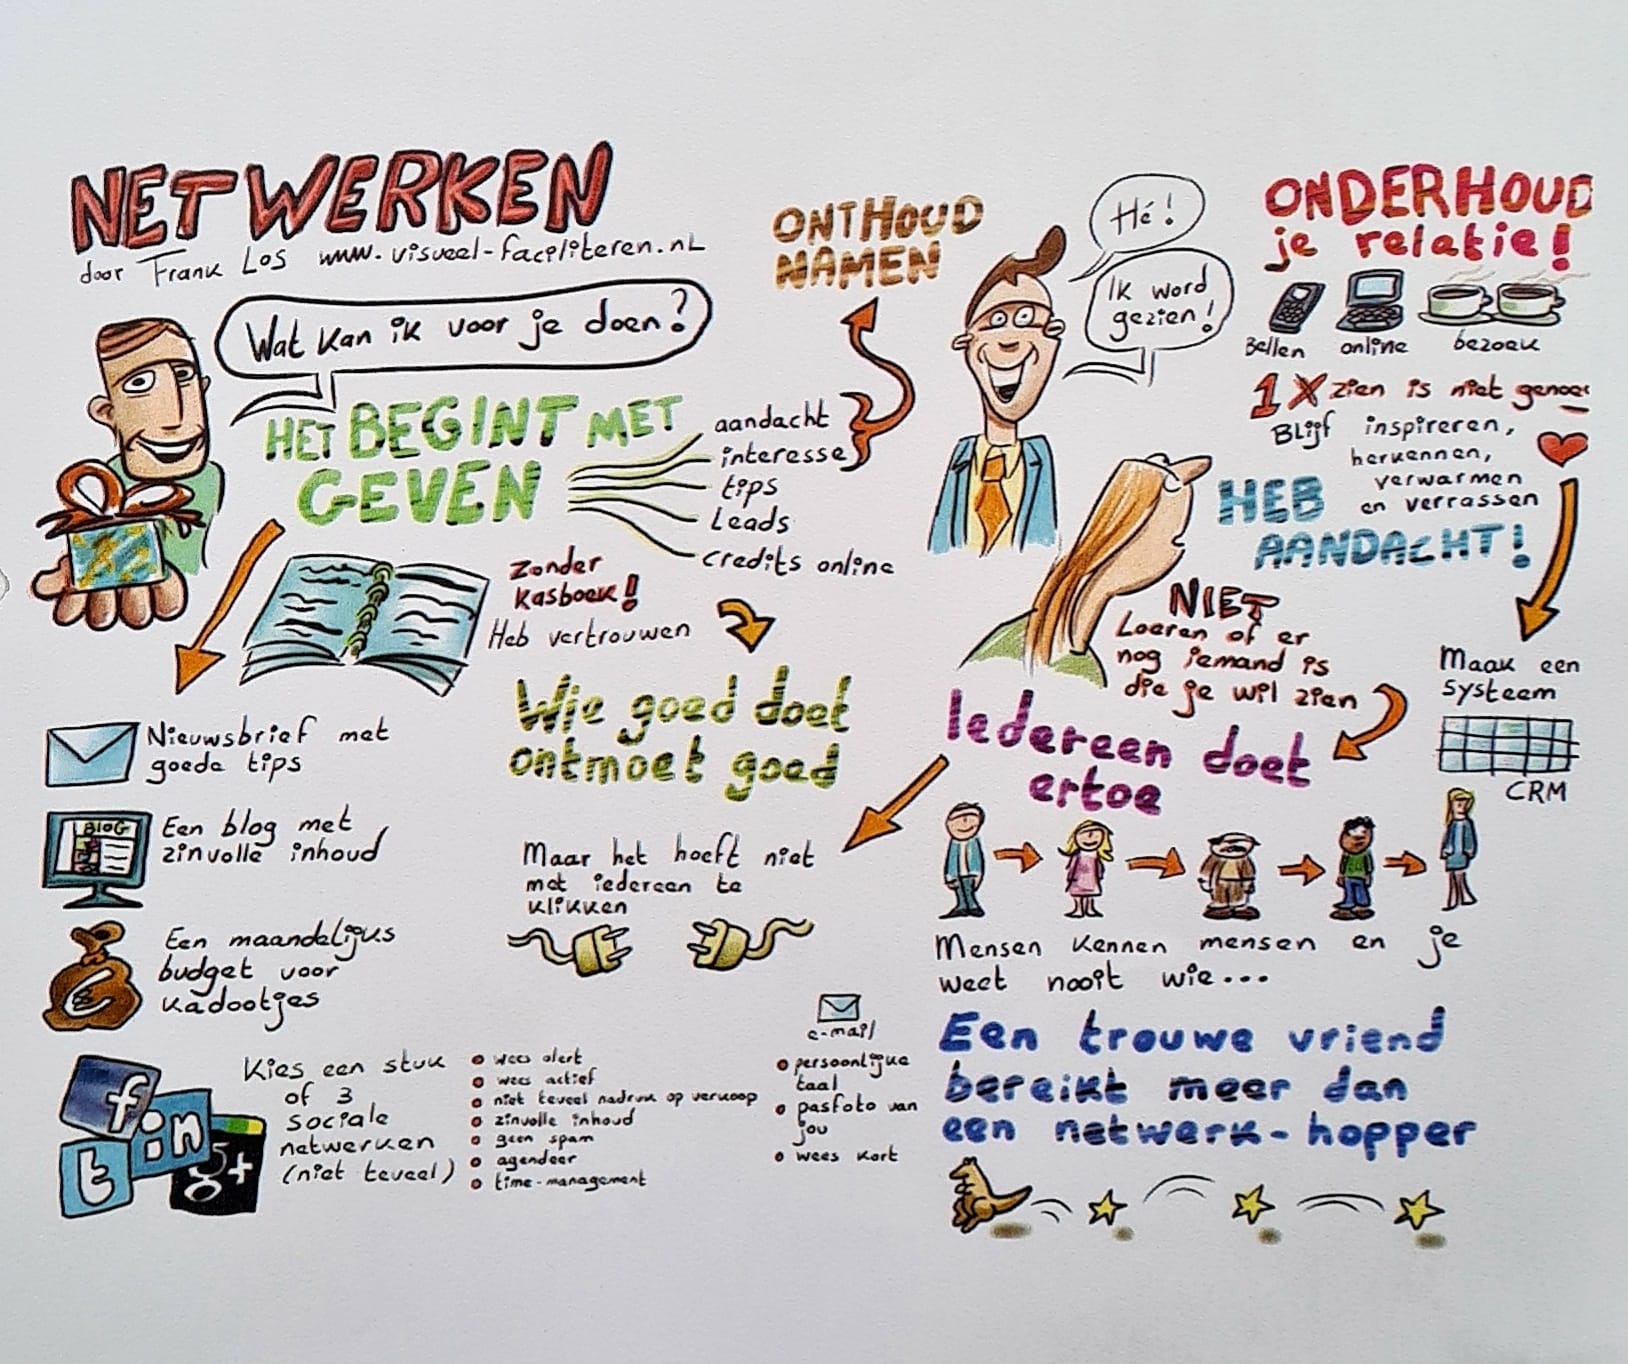 NETWERKEN
door Frank Los www.visueel-faciliteren.nl
Wat kan ik voor je doen?
HET BEGINT MET
GEVEN
aandacht
interesse
tips
Leads
credits online
ONTHOUD
NAMEN
Hé!
Ik word
gezien!
ONDERHOUD
je relatie!
Bellen online bezoek
1X zien is niet genoeg
Blijf inspireren,
herkennen,
verwarmen
en verrassen
HEB
AANDACHT!
NIET
Loeren of er
nog iemand is
die je wil zien
Maak een
systeem
CRM
zonder
kasboek!
Heb vertrouwen
Wie goed doet
ontmoet goed
Iedereen doet
ertoe
Nieuwsbrief met
goede tips
BLOG
Een blog met
zinvolle inhoud
Een maandelijks
budget voor
kadootjes
Maar het hoeft niet
met iedereen te
klikken
Mensen kennen mensen en je
weet nooit wie...
f
in
t
g+
Kies een stuk
of 3
sociale
netwerken
(niet teveel)
wees alert
wees actief
niet teveel nadruk op verkoop
zinvolle inhoud
geen spam
agendeer
time-management
e-mail
persoonlijke
taal
pasfoto van
jou
wees kort
Een trouwe vriend
bereikt meer dan
een netwerk-hopper